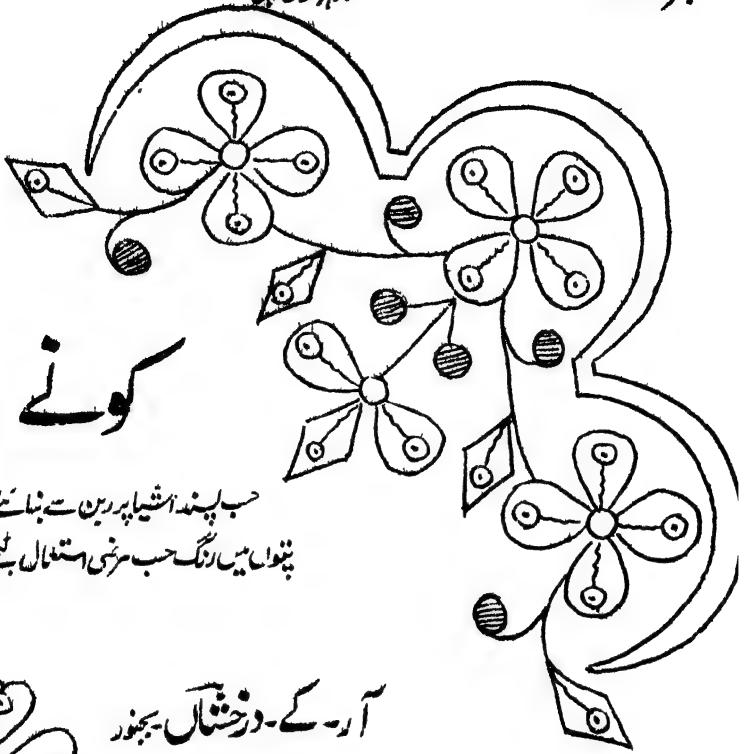 کونے
حسب پسند اشیا پر ربن سے بنائیے
پتوں میں رنگ حسب مرضی استعمال
آر۔ کے۔ درخشاں۔ بجنور